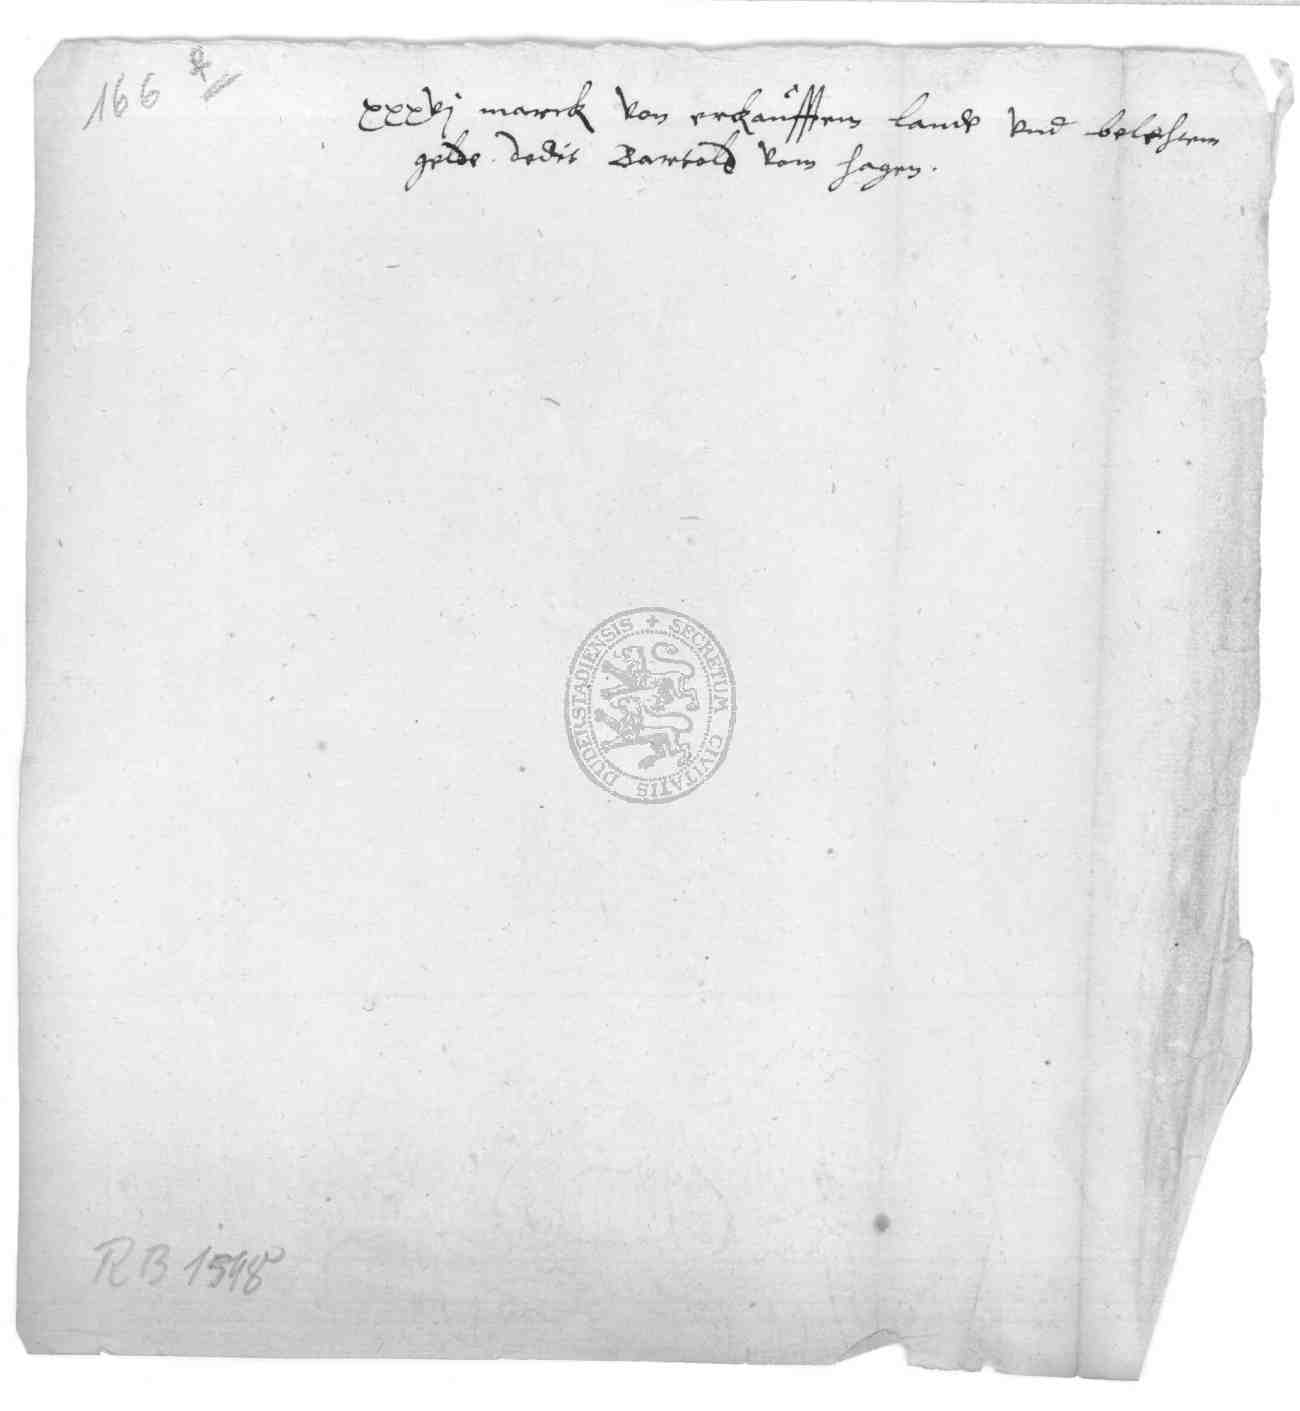 166
xxxvj marck von erkaufftem lande vnd belehtem
gelde. dedit Bartold vom hagen.
SECRETUM CIVITATIS DUDERSTADIENSIS
RB 1548